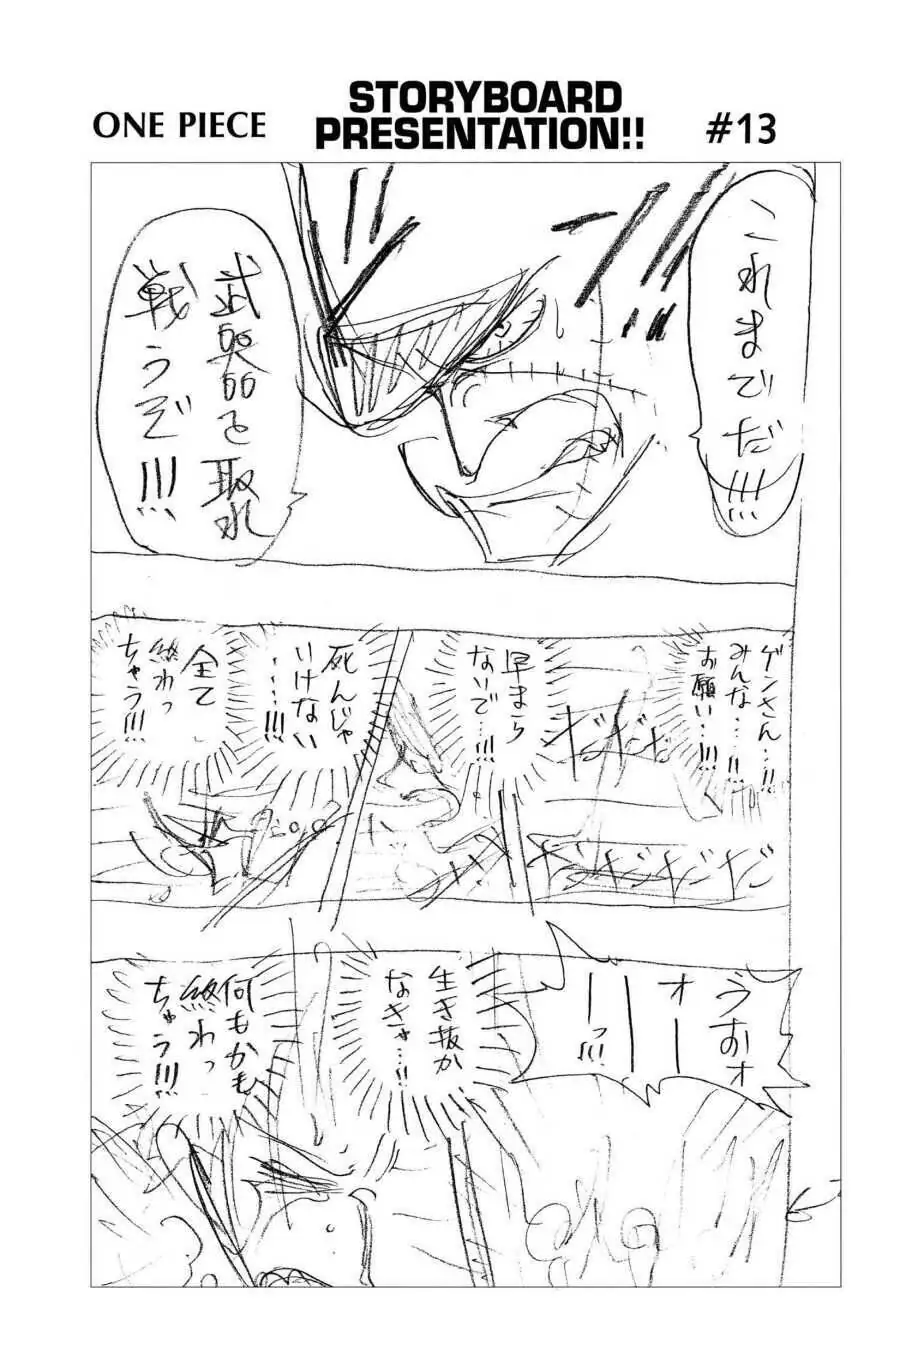 ONE PIECE
STORYBOARD
PRESENTATION!!
#13
これまでだ!!!
武器を取れ
戦うぞ!!!
ゲンさん…!!
みんな…!!
お願い…!!!
早まら
ないで…!!!
ギギギ
ギギギギギ
死んじゃ
いけない
…!!!
全て
終わっ
ちゃう!!!
うおォ
オー
ーーっ!!!
生き抜か
なきゃ…!!
何もかも
終わっ
ちゃう!!!